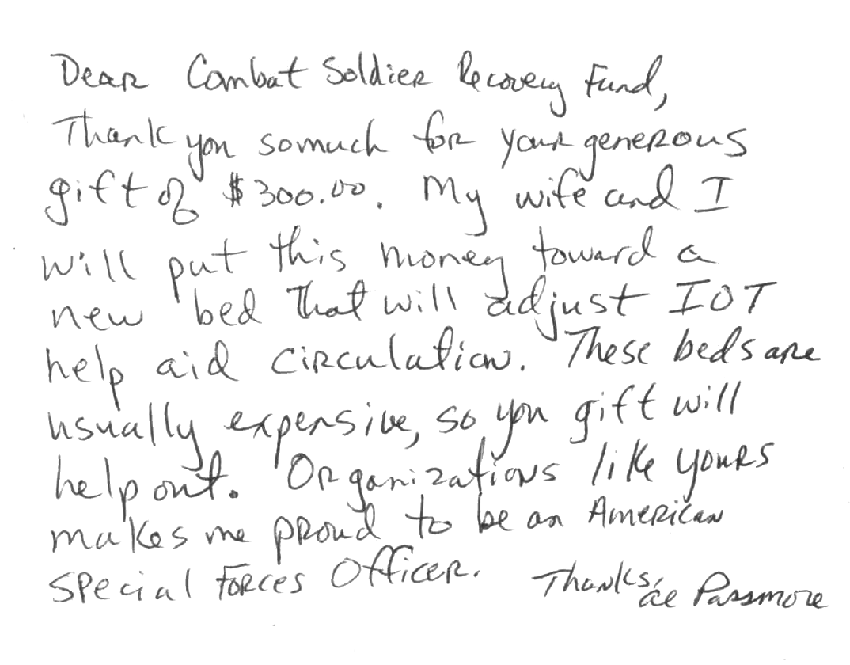 Dear Combat Soldier Recovery Fund,
Thank you somuch for your generous
gift of $300.00. My wife and I
will put this money toward a
new bed that will adjust IOT
help aid circulation. These beds are
usually expensive, so you gift will
help out. Organizations like yours
makes me proud to be an American
Special Forces Officer. Thanks,
ae Passmore